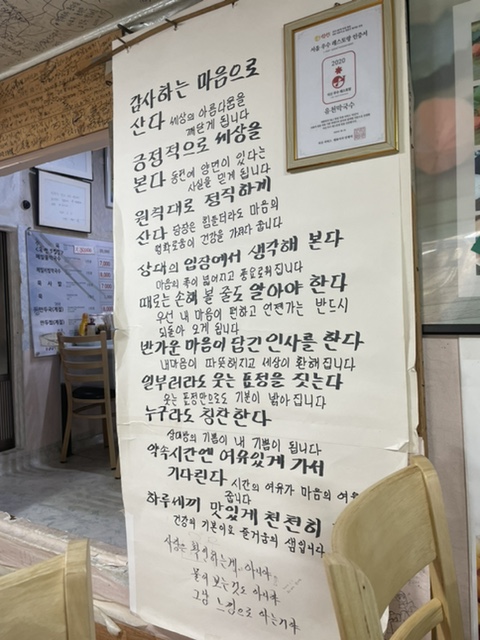 감사하는 마음으로
산다 세상의 아름다움을
깨닫게 됩니다
긍정적으로 세상을
본다 동전에 양면이 있다는
사실을 믿게 됩니다
원칙대로 정직하게
산다 당장은 힘들더라도 마음의
평화로움이 건강을 가져다 줍니다
상대의 입장에서 생각해 본다
마음의 폭이 넓어지고 풍요로워집니다
때로는 손해 볼 줄도 알아야 한다
우선 내 마음이 편하고 언젠가는 반드시
되돌아 오게 됩니다
반가운 마음이 담긴 인사를 한다
내마음이 따뜻해지고 세상이 환해집니다
일부러라도 웃는 표정을 짓는다
웃는 표정만으로도 기분이 밝아집니다
누구라도 칭찬한다
상대방의 기쁨이 내 기쁨이 됩니다
약속시간엔 여유있게 가서
기다린다 시간의 여유가 마음의 여유
줍니다
하루세끼 맛있게 천천히
건강의 기본이요 즐거움의 샘입니다
사랑은 확인하는게 아니야
물어 보는것도 아니야
그냥 느낌으로 아는거야
서울 우수 레스토랑 인증서
2020
유천막국수